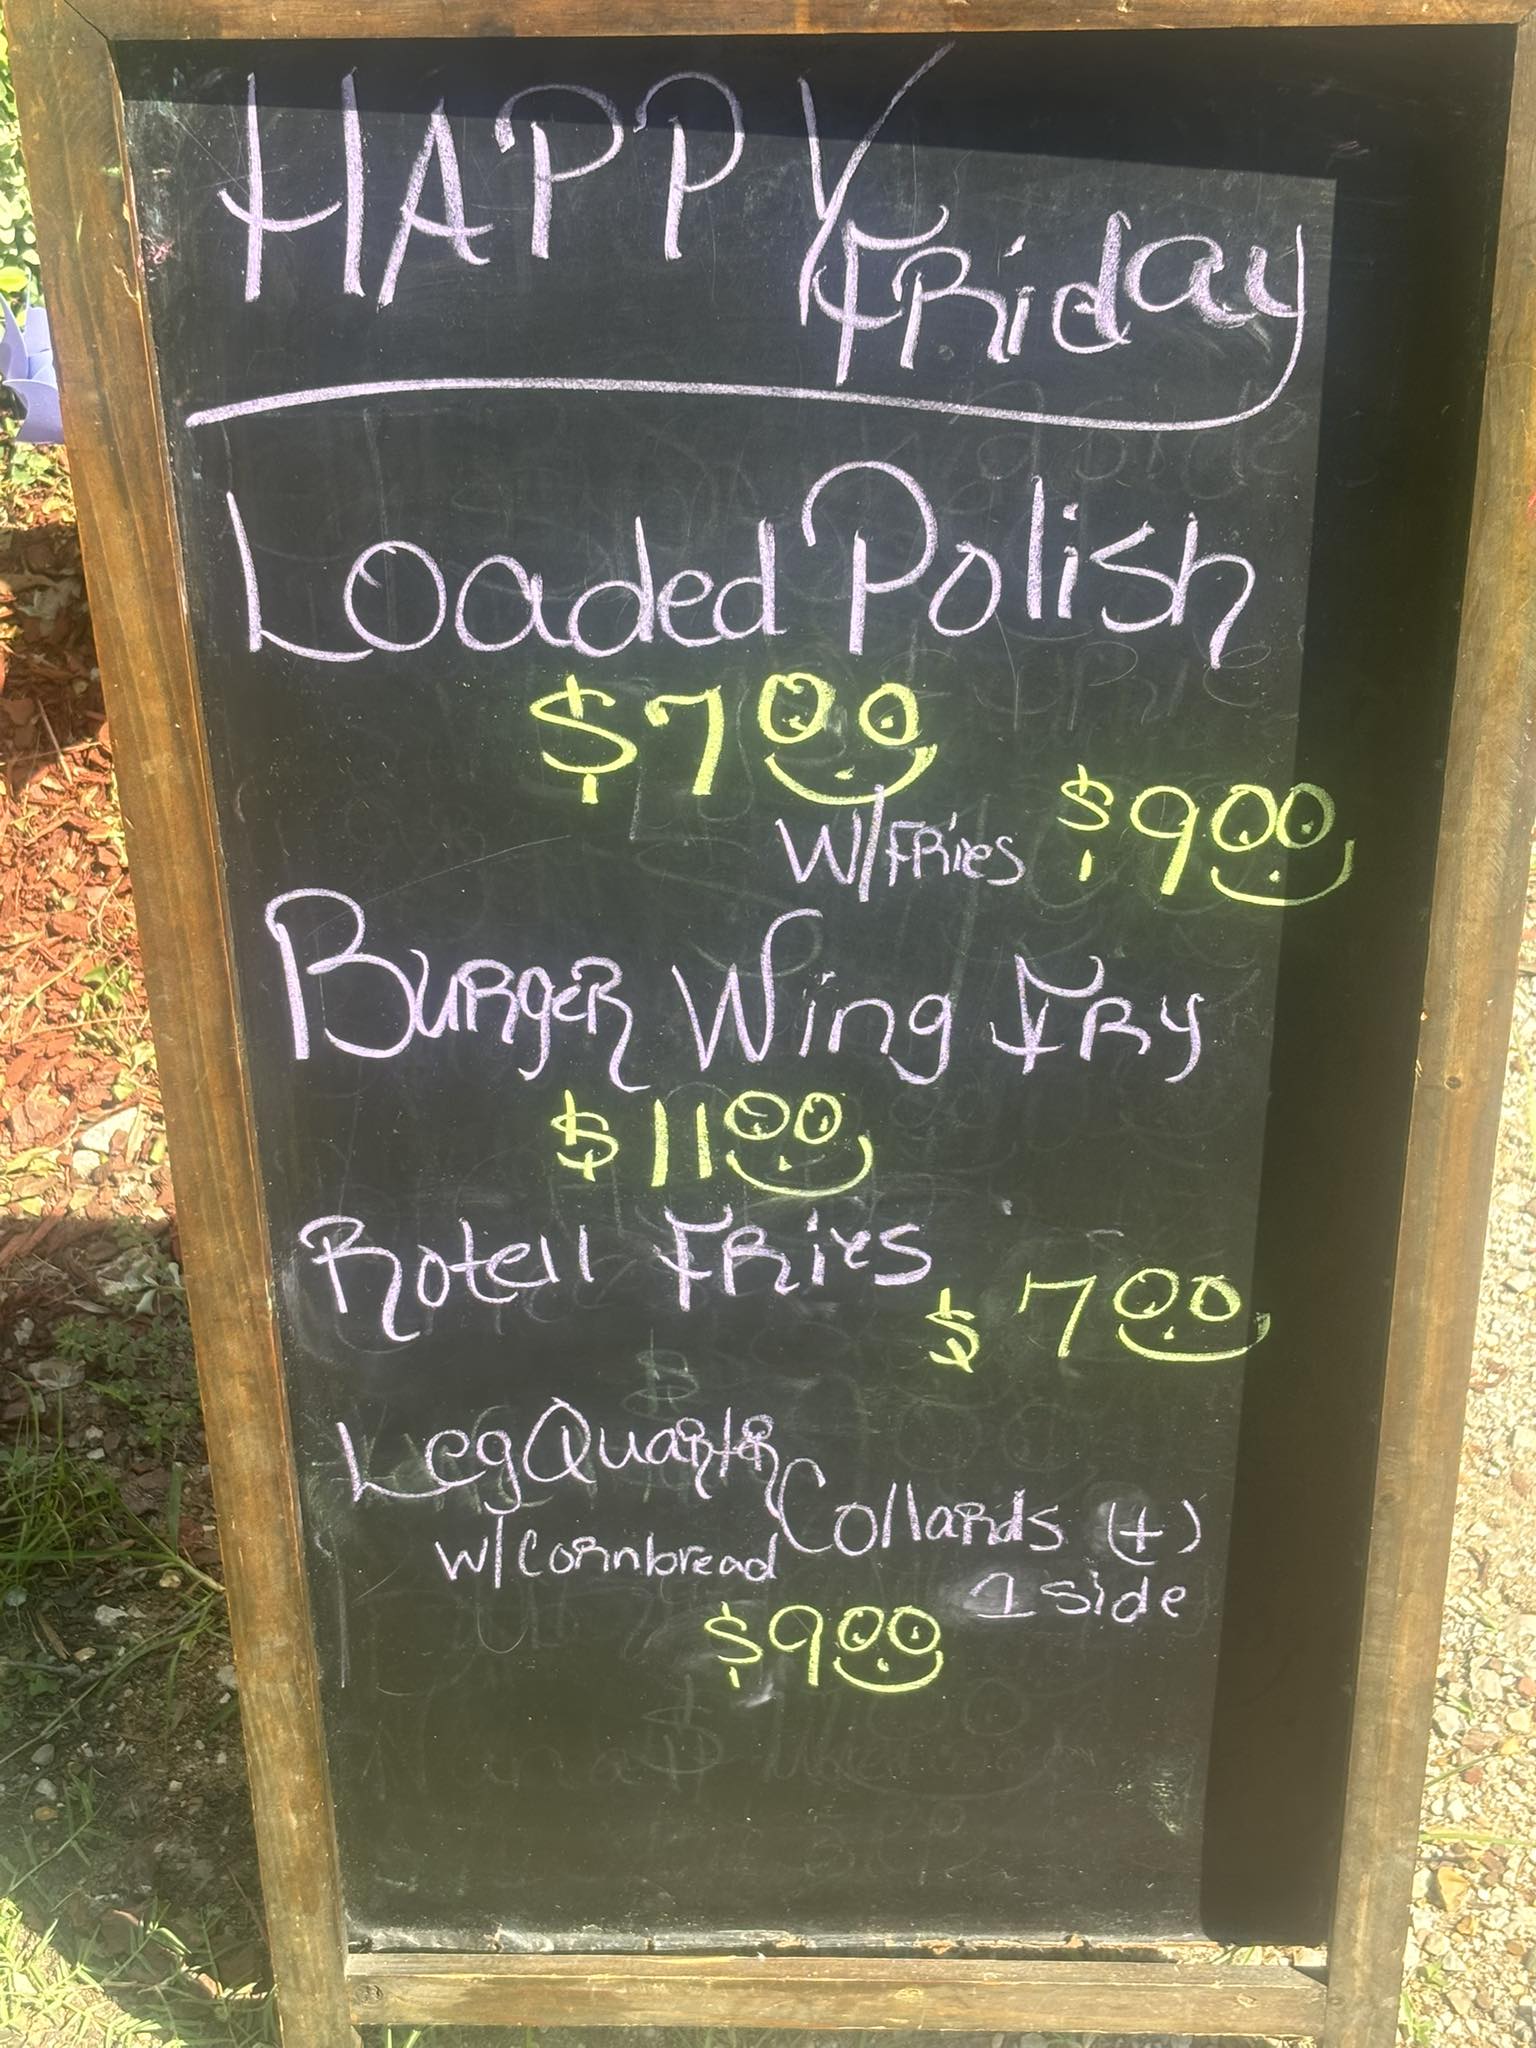 HAPPY
Friday
Loaded Polish
$7.00
W/Fries $9.00
Burger Wing Fry
$11.00
Rotell Fries
$7.00
Leg Quarter
Collards (+)
w/Cornbread
1 side
$9.00